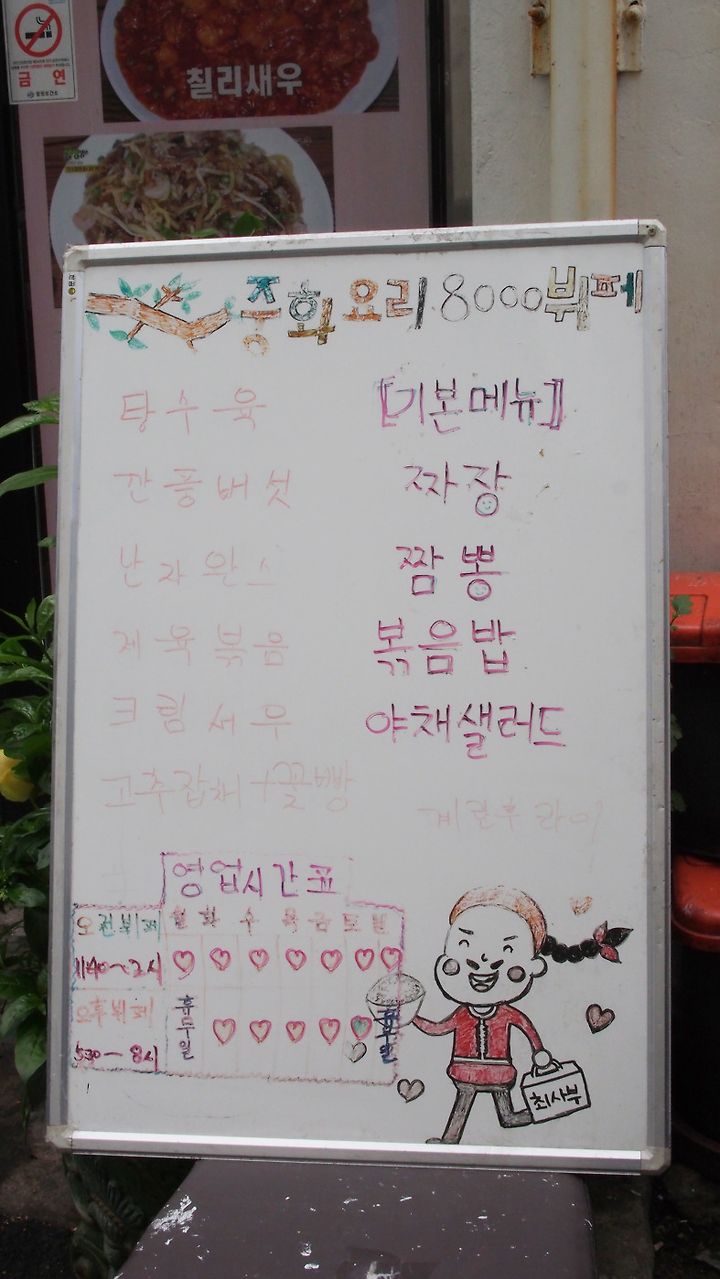 금연
칠리새우
중화요리 8000뷔페
탕수육
깐풍버섯
난자완스
제육볶음
크림새우
고추잡채+꽃빵
[기본메뉴]
짜장
짬뽕
볶음밥
야채샐러드
계란후라이
영업시간표
오전뷔페 월 화 수 목 금 토 일
11:40~2시 ♡ ♡ ♡ ♡ ♡ ♡ ♡
오후뷔페 휴무일 ♡ ♡ ♡ ♡ ♡ 휴무일
5:30~8시
최사부